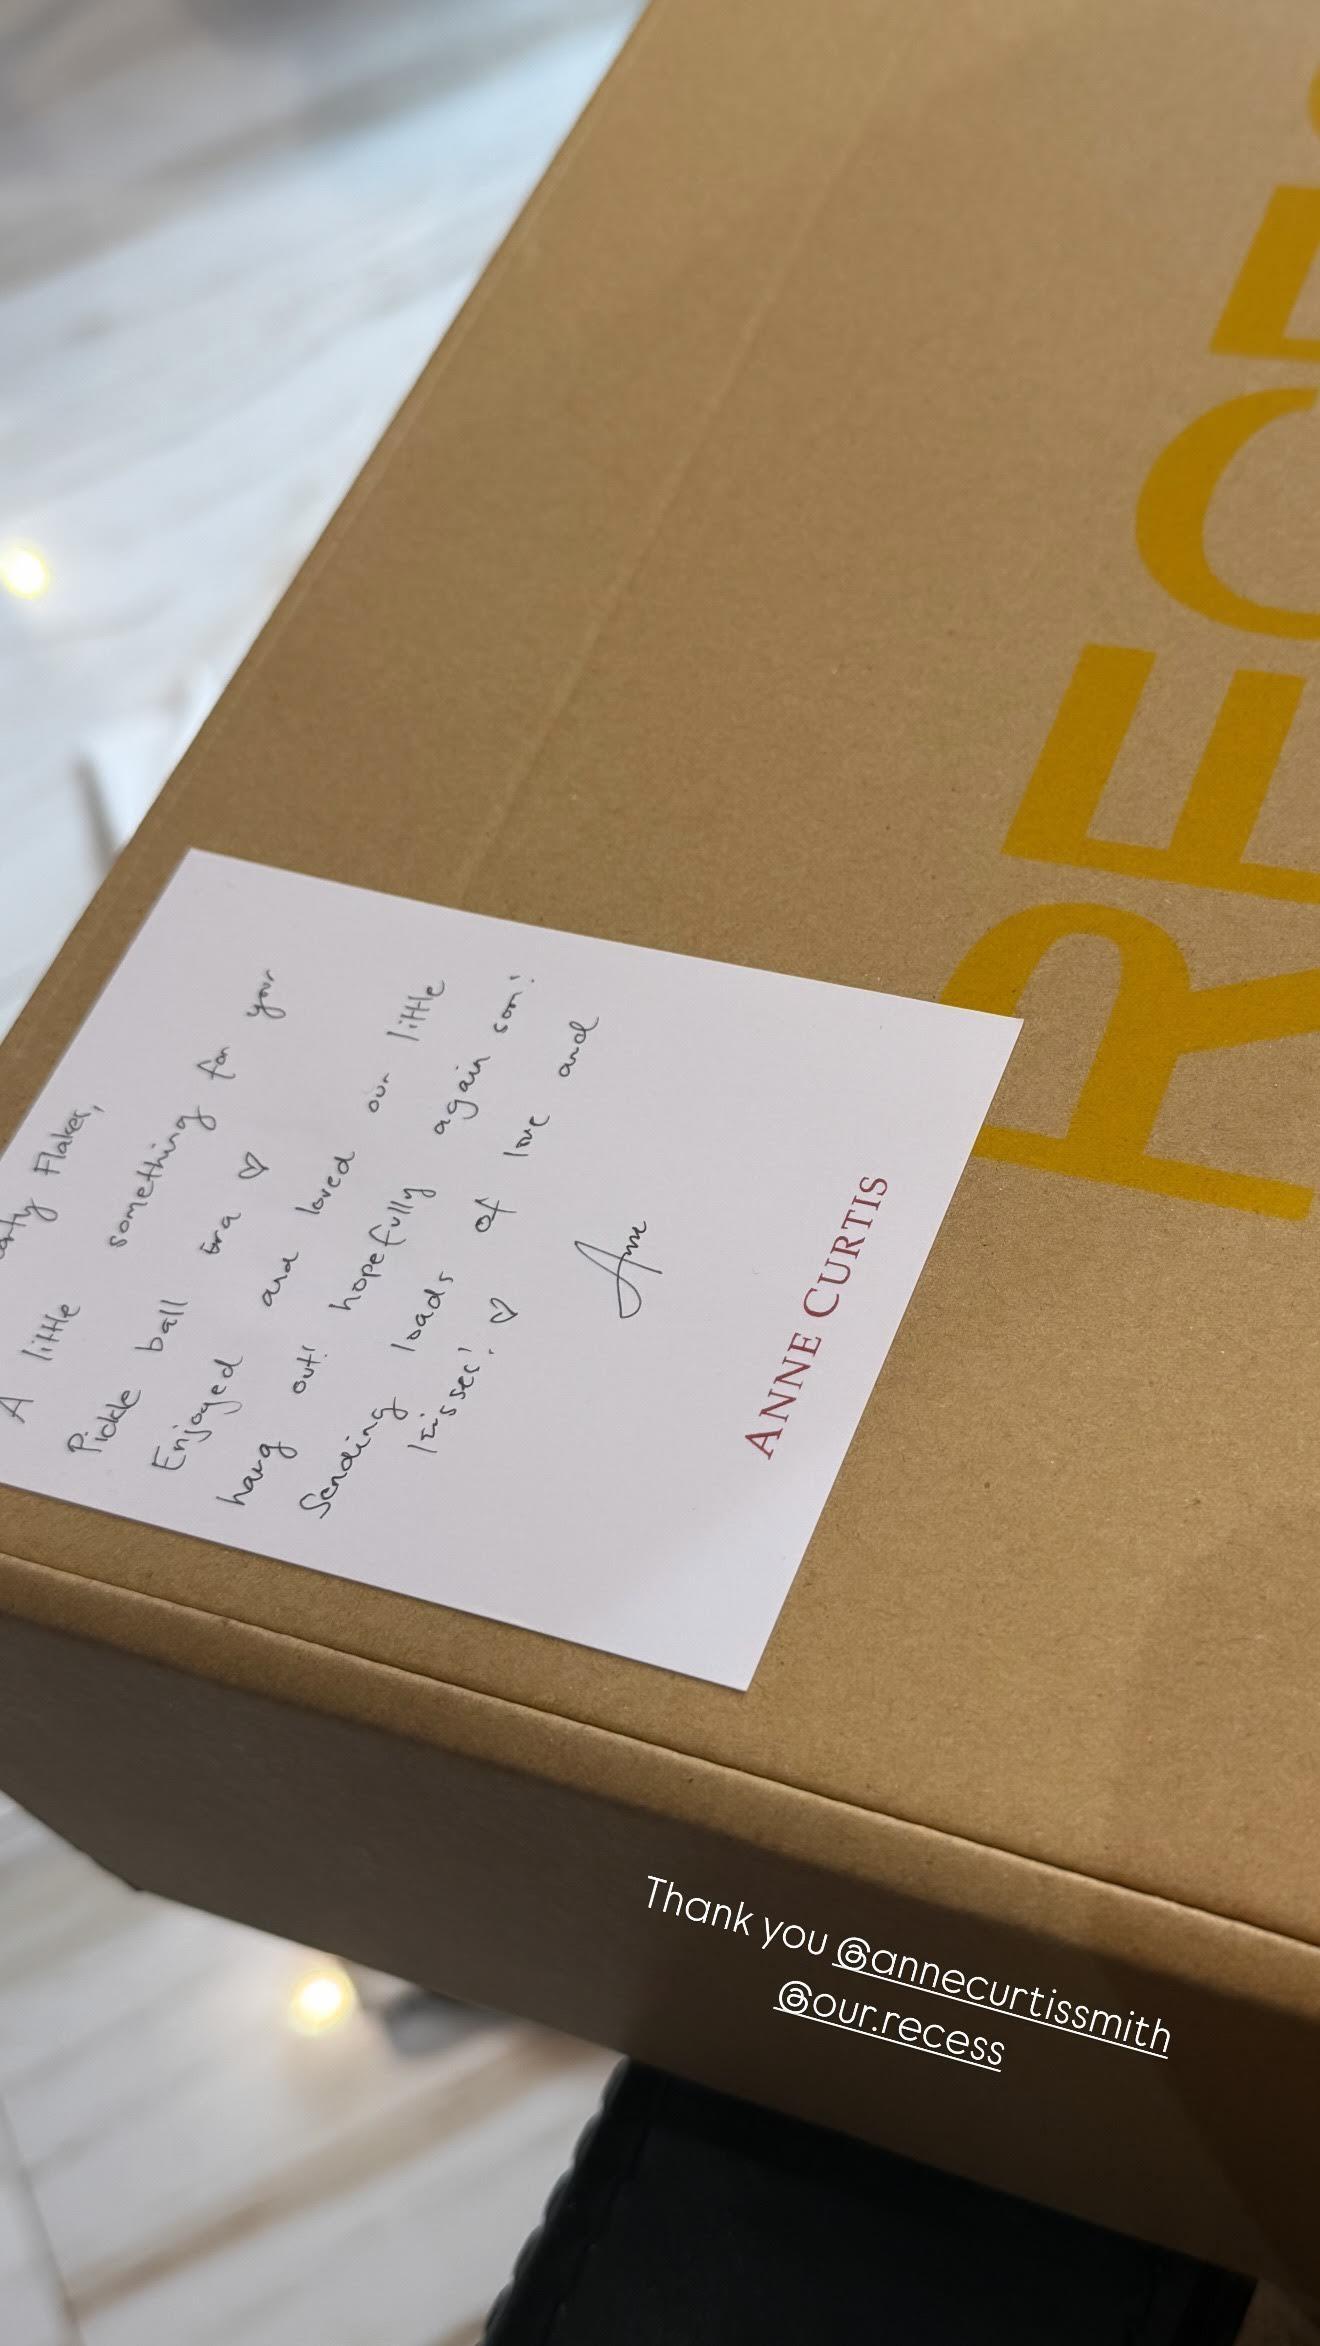 Flaker,
A little something for your
Pickle ball Era ♡
Enjoyed and loved our little
hang out! hopefully again soon!
Sending loads of love and
kisses! ♡
Anne
ANNE CURTIS
REC
Thank you @annecurtissmith
@our.recess